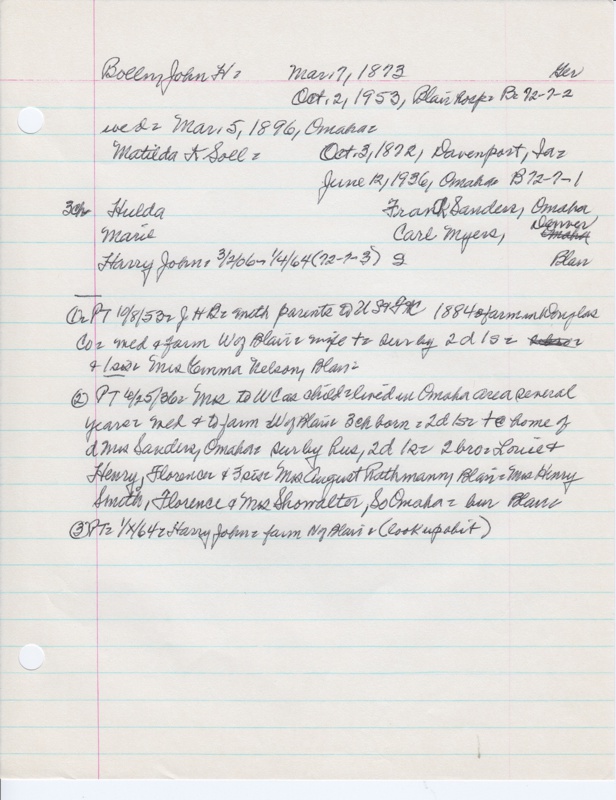 Bolln, John H= Mar. 7, 1873 Ger
Oct. 2, 1953, Blair hosp= B= 72-7-2
wed= Mar. 5, 1896, Omaha=
Matilda A Soll= Oct. 3, 1872, Davenport, Ia=
June 12, 1936, Omaha= B72-7-1
3ch Hulda Frank Sanders, Omaha
Marie Carl Myers, Denver
Harry John= 3/2/06- 1/4/64 (72-7-3) Blair
① PT 10/8/53= J H B= with parents to US 1884 & farm in Douglas
Co= wed & farm W of Blair= wife += sur by 2d 1s=
& 1 sis= Mrs Emma Nelson, Blair=
② PT 6/25/36= Mrs to WC as child= lived in Omaha area several
years= wed & to farm W of Blair= 3ch born= 2d 1s= + @ home of
d Mrs Sanders, Omaha= sur by hus, 2d 1s= 2 bro= Louie &
Henry, Florence= & 3 sis= Mrs August Rathmann, Blair= Mrs Henry
Smith, Florence & Mrs Showalter, So Omaha= bur Blair=
③ PT= 1/ /64= Harry John= farm N of Blair= (look up obit)